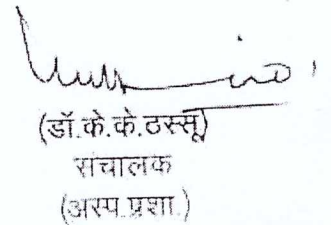 (डॉ.के.के.ठस्सू)
संचालक
(अस्प.प्रशा.)